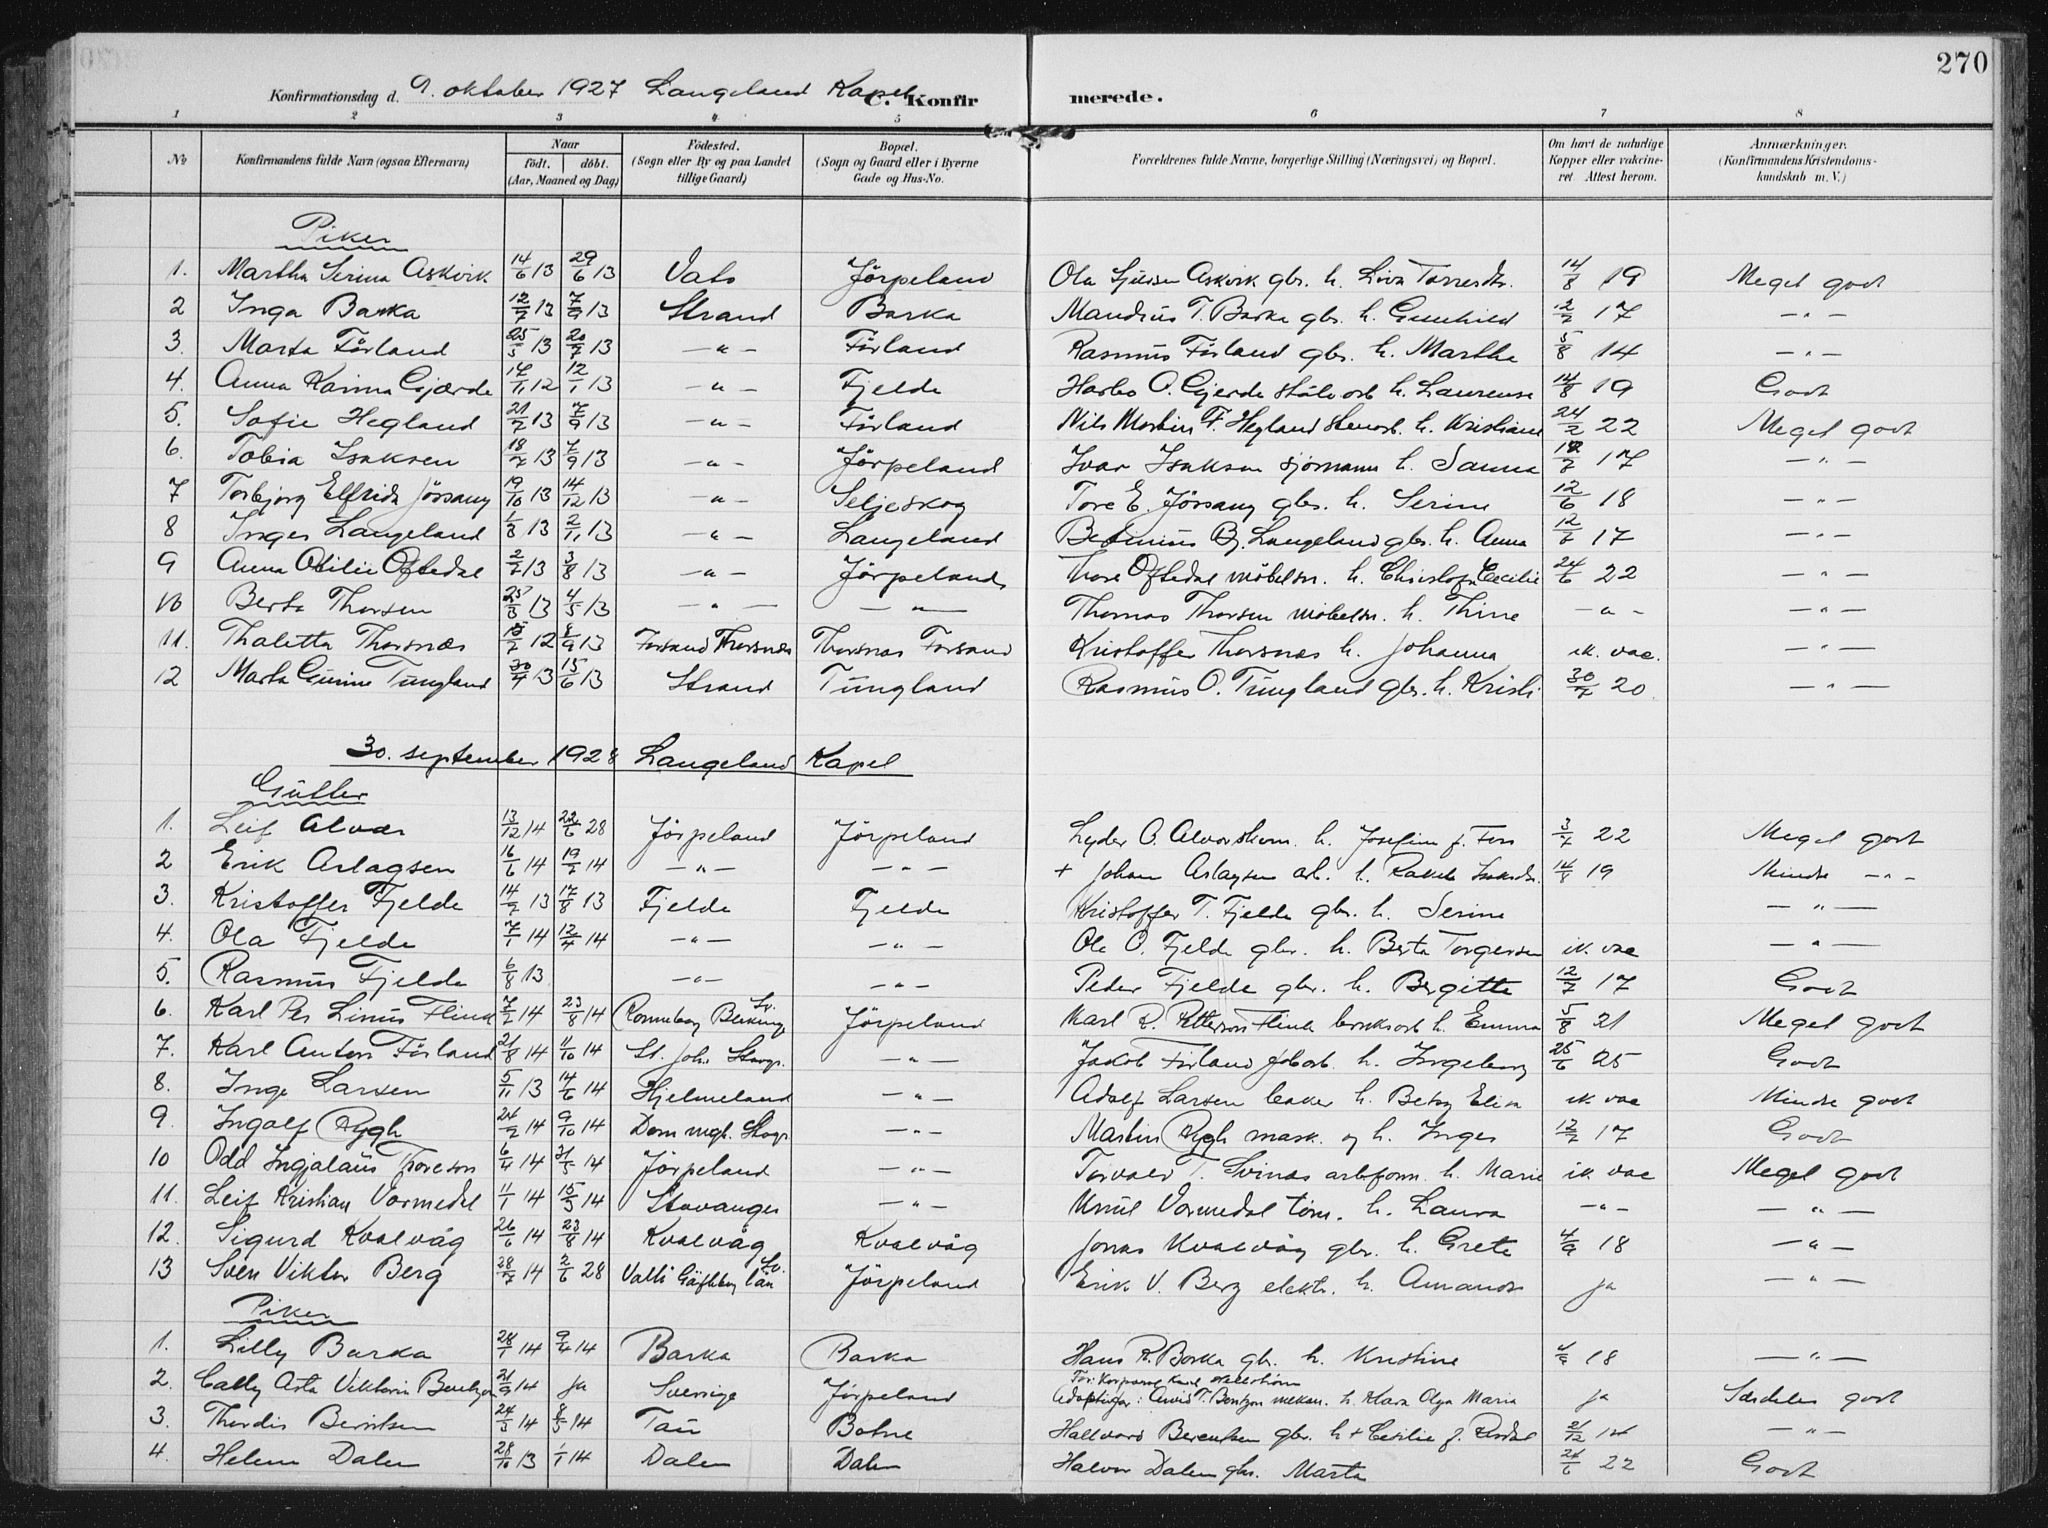 270
Konfirmationsdag d. 9. oktober 1927 Langeland Kapel C. Konfirmerede.
1 2 3 4 5 6 7 8
No Konfirmandens fulde Navn (ogsaa Efternavn) Naar födt. döbt. (Aar, Maaned og Dag) Födested. (Sogn eller By og paa Landet tillige Gaard) Bopæl. (Sogn og Gaard eller i Byerne Gade og Hus-No. Forældrenes fulde Navne, borgerlige Stilling (Næringsvei) og Bopæl. Om havt de naturlige Kopper eller vakcineret. Attest herom. Anmærkninger. (Konfirmandens Kristendomskundskab m. V.)
Piker
1. Martha Serina Askvik 14/6 13 29/6 13 Vats Jörpeland Ola Sjursen Askvik gbr. h. Liva 14/8 19 Meget godt
2 Inga Barka 12/7 13 7/9 13 Strand Barka Mandius T. Barka gbr. h. Gunhild 2/7 17 —"—
3. Marta Förland 25/5 13 20/7 13 —"— Förland Rasmus Förland gbr. h. Martha 5/8 14 —"—
4. Anna Karina Gjærde 14/11 12 12/1 13 —"— Fjelde O. Gjerde h. Laurense 14/8 19 Godt
5. Sofie Hegland 21/7 13 7/9 13 —"— Förland Nils Martin F. Hegland stenarb. h. Kristiane 24/2 22 Meget godt
6. Tobia Isaksen 18/7 13 7/9 13 —"— Jörpeland Ivar Isaksen sjömann h. Sanna 17 —"—
7 Torbjorg Elfrida Jörsang 19/10 13 14/12 13 —"— Seljeskog Tore E. Jörsang gbr. h. Serine 12/6 18 —"—
8 Inger Langeland 1/8 13 2/11 13 —"— Langeland B. Langeland gbr. h. Anna 12/6 17 —"—
9 Anna Otilie Oftedal 2/7 13 3/8 13 —"— Jörpeland Thore Oftedal möbelsn. h. Cecilie 24/6 22 —"—
10 Berta Thorsen 25/3 13 4/5 13 —"— —"— Thomas Thorsen möbelsn. h. Thine —"— —"—
11. Thaletta Thorsnæs 15/7 12 8/9 13 Forsand Thorsnæs Thorsnæs Forsand Kristoffer Thorsnæs h. Johanna ik. vac. —"—
12 Marta Gurine Tungland 30/4 13 15/6 13 Strand Tungland Rasmus O. Tungland gbr. h. Kristi 30/7 20 —"—
30. september 1928 Langeland Kapel
Gutter
1. Leif Alvær 13/12 14 22/6 28 Jörpeland Jörpeland Lyder O. Alvær h. Josefine f. 3/7 22 Meget godt
2 Erik Aslagsen 16/6 14 19/7 14 —"— —"— + Johan Aslagsen arb. h. Rakel 14/8 19 Mindre —"—
3. Kristoffer Fjelde 14/7 13 17/8 13 Fjelde Fjelde Kristoffer T. Fjelde gbr. h. Serine —"—
4. Ola Fjelde 7/1 14 12/4 14 —"— —"— Ole O. Fjelde gbr. h. Berta Torgersen ik. vac —"—
5. Rasmus Fjelde 6/8 13 —"— —"— Peder Fjelde gbr. h. Bergitte 12/7 17 Godt
6. Karl Per Linus Flink 7/7 14 23/8 14 Ronneborg Bleking Sv. Jörpeland Karl R. Petterson Flink bruksarb h. Emma 5/8 21 Meget godt
7. Karl Anton Förland 21/8 14 11/10 14 St. Joh. Stavgr. —"— Jacob Förland h. Ingeborg 25/6 25 Godt
8. Inge Larsen 5/11 13 14/6 14 Hjelmeland —"— Adolf Larsen baker h. Betsy Elisa ik. vac Mindre godt
9. Ingolf Rygh 24/7 14 9/10 14 Dom mgh. Stvgr —"— Martin Rygh mask. og h. Inger 12/7 17 Godt
10 Odd Ingjalaus Thoreson 6/4 14 31/5 14 Jörpeland —"— Torvald T. Svinæs arbform. h. Marie ik. vac Meget godt
11. Leif Kristian Vormedal 11/1 14 15/3 14 Stavanger —"— Knut Vormedal töm. h. Laura —"— —"—
12. Sigurd Kvalvåg 26/6 14 23/8 14 Kvalvåg Kvalvåg Jonas Kvalvåg gbr. h. Grete 4/9 18 —"—
13 Sven Viktor Berg 28/7 14 2/6 28 Valbo Gäfleborg län Sv. Jörpeland Erik V. Berg elektr. h. Amanda ja —"—
Piker
1. Lilly Barka 28/1 14 9/4 14 Barka Barka Hans R. Barka gbr. h. Kristine 4/9 18 —"—
2. Cally Asta Viktoria Bentzon 21/9 14 ja Sverige Jörpeland Far: Korporal Karl Hellström Adoptivfar: Arvid T. Bentzon mekan. h. Klara Olga Maria ja Særdeles godt
3. Thordis Berntsen 24/3 14 8/5 14 Tau Botne Hallvard Berentsen gbr. h + Cecilie f. 21/12 14 —"—
4. Helene Dalen 28/10 13 1/1 14 Dalen Dalen Halvor Dalen gbr. Marta 24/6 22 Godt